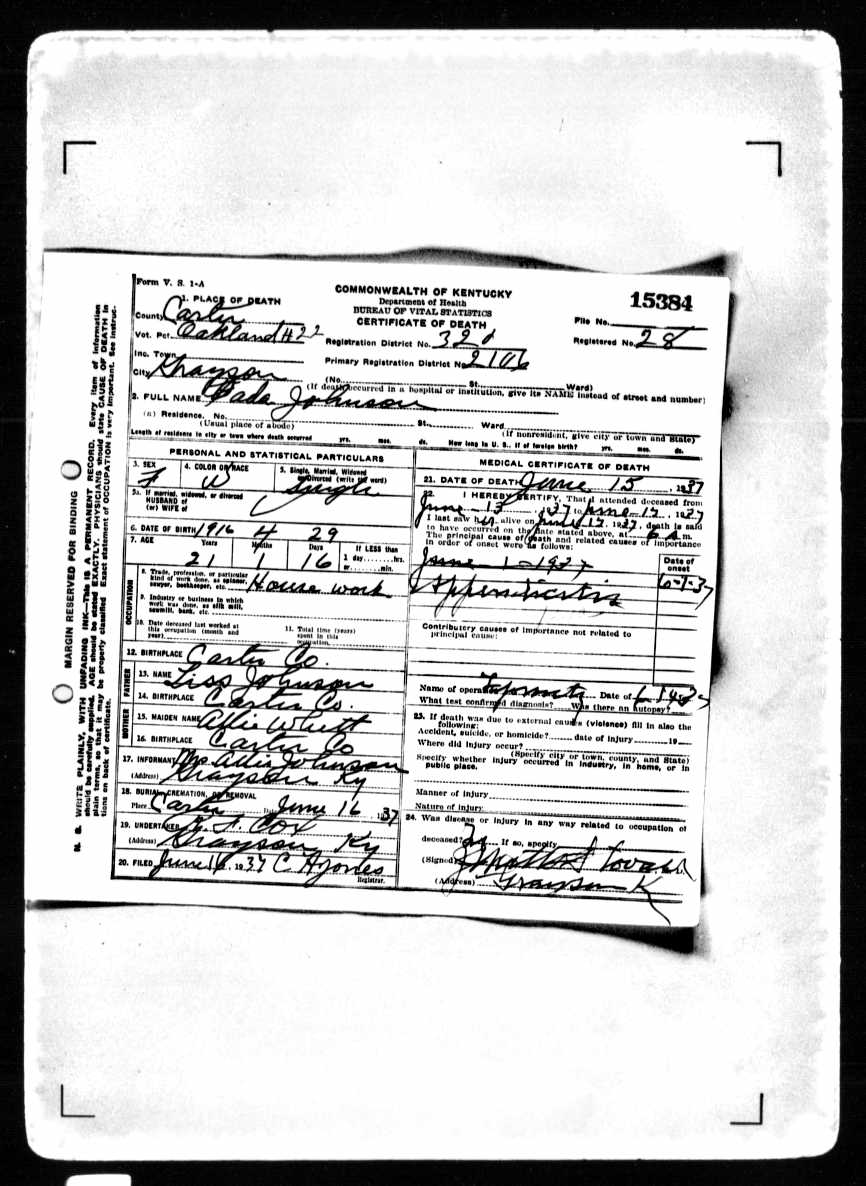 Form V. S. 1-A
COMMONWEALTH OF KENTUCKY
Department of Health
BUREAU OF VITAL STATISTICS
CERTIFICATE OF DEATH
15384
File No.
Registered No. 28
1. PLACE OF DEATH
County Carter
Vot. Pct. Oakland #22
Inc. Town
City Grayson
Registration District No.
Primary Registration District No.
(No. St. Ward)
(If death occurred in a hospital or institution, give its NAME instead of street and number)
2. FULL NAME Johnson
(a) Residence. No. St. Ward
(Usual place of abode) (If nonresident, give city or town and State)
Length of residence in city or town where death occurred yrs. mos. ds. How long in U. S., if of foreign birth? yrs. mos. ds.
PERSONAL AND STATISTICAL PARTICULARS
3. SEX F
4. COLOR OR RACE W
5. Single, Married, Widowed or Divorced (write the word) Single
5a. If married, widowed, or divorced
HUSBAND of
(or) WIFE of
6. DATE OF BIRTH 1916 4 29
7. AGE Years Months Days If LESS than
21 1 16 1 day hrs.
or min.
OCCUPATION
8. Trade, profession, or particular
kind of work done, as spinner,
sawyer, bookkeeper, etc. House work
9. Industry or business in which
work was done, as silk mill,
sawmill, bank, etc.
10. Date deceased last worked at
this occupation (month and
year)
11. Total time (years)
spent in this
occupation
12. BIRTHPLACE Carter Co.
FATHER
13. NAME Johnson
14. BIRTHPLACE Carter Co.
MOTHER
15. MAIDEN NAME Allie Whitt
16. BIRTHPLACE Carter Co
17. INFORMANT Mrs Allie Johnson
(Address) Grayson Ky
18. BURIAL, CREMATION, OR REMOVAL
Place Carter Date June 16 1937
19. UNDERTAKER Cox
(Address) Grayson Ky
20. FILED June 16, 1937 C A Jones
Registrar.
MEDICAL CERTIFICATE OF DEATH
21. DATE OF DEATH June 15, 1937
22. I HEREBY CERTIFY, That I attended deceased from
June 13, 1937 to June 1937
I last saw alive on June 1937, death is said
to have occurred on the date stated above, at 6 a m.
The principal cause of death and related causes of importance
in order of onset were as follows:
Date of onset
June 1-1937
Appendicitis 6-1-37
Contributory causes of importance not related to
principal cause:
Name of operation Date of 6-14-37
What test confirmed diagnosis? Was there an autopsy?
23. If death was due to external causes (violence) fill in also the
following:
Accident, suicide, or homicide? date of injury 19
Where did injury occur?
(Specify city or town, county, and State)
Specify whether injury occurred in industry, in home, or in
public place.
Manner of injury
Nature of injury
24. Was disease or injury in any way related to occupation of
deceased? If so, specify
(Signed)
(Address) Grayson K
MARGIN RESERVED FOR BINDING
N. B. WRITE PLAINLY, WITH UNFADING INK—This IS A PERMANENT RECORD. Every item of information
should be carefully supplied. AGE should be stated EXACTLY. PHYSICIANS should state CAUSE OF DEATH in
plain terms, so that it may be properly classified. Exact statement of OCCUPATION is very important. See instruc-
tions on back of certificate.